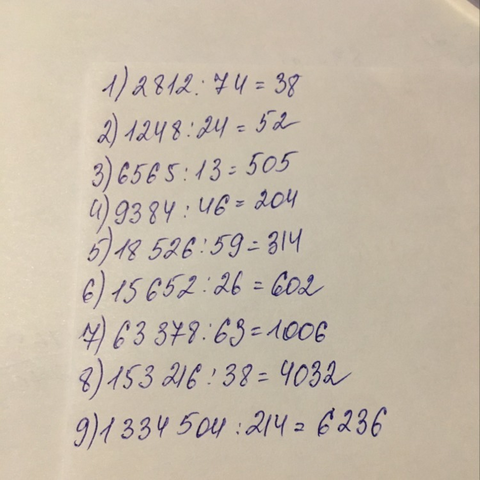 1) 2812 : 74 = 38
2) 1248 : 24 = 52
3) 6565 : 13 = 505
4) 9384 : 46 = 204
5) 18 526 : 59 = 314
6) 15 652 : 26 = 602
7) 63 378 : 63 = 1006
8) 153 216 : 38 = 4032
9) 1 334 504 : 214 = 6 236